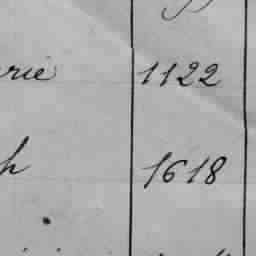 rie 1122
h 1618